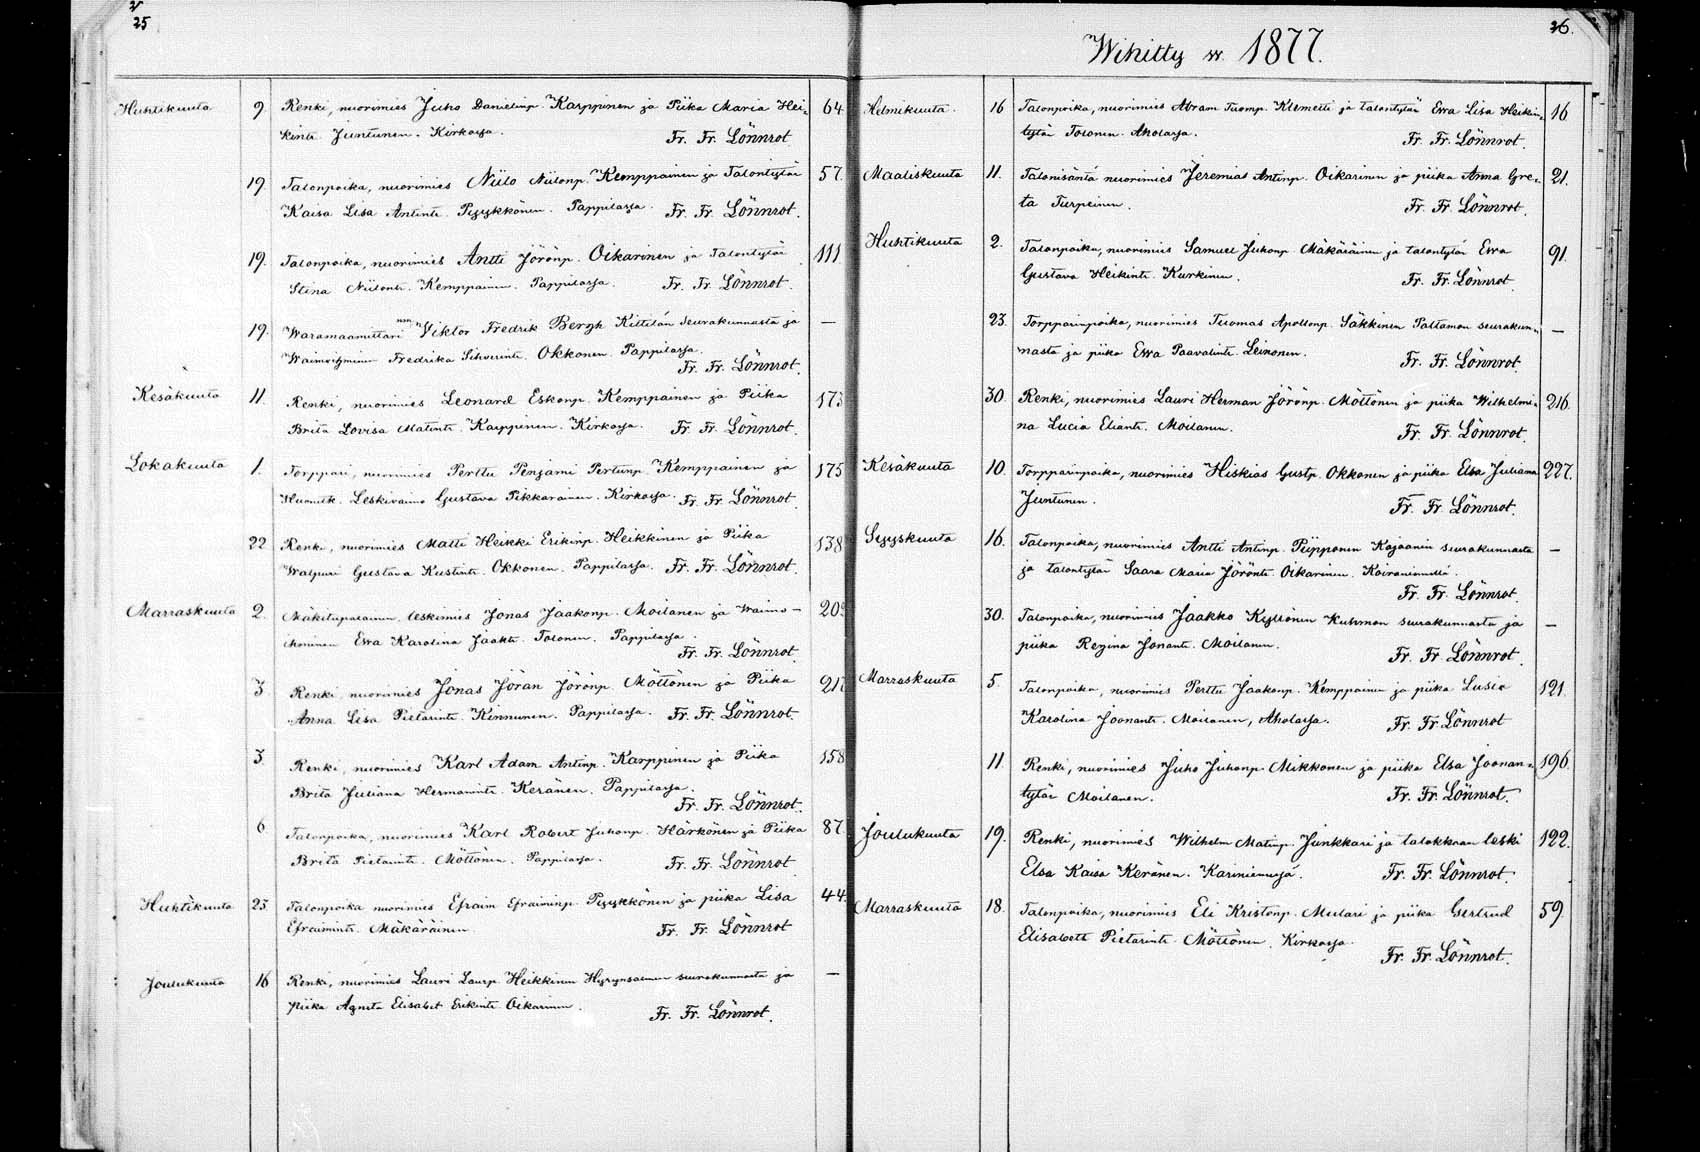 25
Huhtikuuta 9 Renki, nuorimies Juho Danielinp. Karppinen ja Piika Maria Hei- 64
kintr Juntunen. Kirkossa. Fr. Fr. Lönnrot
19. Talonpoika, nuorimies Niilo Niilonp. Kemppainen ja Talontytär 57.
Kaisa Lisa Antintr. Pyykkönen. Pappilassa. Fr. Fr. Lönnrot.
19. Talonpoika, nuorimies Antti Jöränp. Oikarinen ja Talontytär 111.
Stina Niilontr. Kemppainen. Pappilassa. Fr. Fr. Lönnrot.
19. Waramaamittari Viktor Fredrik Bergh Kittilän seurakunnasta ja —
Fredrika Okkonen. Pappilassa.
Fr. Fr. Lönnrot.
Kesäkuuta 11. Renki, nuorimies Leonard Eskonp. Kemppainen ja Piika 173
Brita Lovisa Matintr. Karppinen. Kirkossa. Fr. Fr. Lönnrot.
Lokakuuta 1. Torppari, nuorimies Perttu Penjami Pertunp. Kemppainen ja 175
Leskivaimo Gustava Pikkarainen. Kirkossa. Fr. Fr. Lönnrot
22 Renki, nuorimies Matti Heikki Erikinp. Heikkinen ja Piika 138
Walpuri Gustava Kustintr. Okkonen. Pappilassa. Fr. Fr. Lönnrot.
Marraskuuta 2. Mäkitupalainen, leskimies Jonas Jaakonp. Moilanen ja Waimo- 20
Ewa Karolina Jaaktr. Tolonen. Pappilassa.
Fr. Fr. Lönnrot
3. Renki, nuorimies Jonas Jöran Jöränp. Möttönen ja Piika 217
Anna Lisa Pietarintr. Kinnunen. Pappilassa. Fr. Fr. Lönnrot.
3. Renki, nuorimies Karl Adam Antinp. Karppinen ja Piika 158
Brita Juliana Hermanintr. Keränen. Pappilassa.
Fr. Fr. Lönnrot
6. Talonpoika, nuorimies Karl Robert Juhonp. Härkönen ja Piika 87.
Brita Pietarintr. Möttönen. Pappilassa. Fr. Fr. Lönnrot
Huhtikuuta 23. Talonpoika nuorimies Efraim Efraiminp. Pyykkönen ja piika Lisa 44.
Efraimintr. Mäkäräinen Fr. Fr. Lönnrot
Joulukuuta 16 Renki, nuorimies Lauri Laurp. Heikkinen Hyrynsalmen seurakunnasta ja —
Piika Agneta Elisabet Erikintr Oikarinen. Fr. Fr. Lönnrot.
26.
Wihitty w. 1877.
Helmikuuta. 16 Talonpoika, nuorimies Abram Tuomp. Klemetti ja talontytär Ewa Lisa Heikin- 16
tytär Tolonen. Aholassa. Fr. Fr. Lönnrot.
Maaliskuuta 11. Talonisäntä nuorimies Jeremias Antinp. Oikarinen ja piika Anna Gre- 21.
ta Turpeinen. Fr. Fr. Lönnrot.
Huhtikuuta 2. Talonpoika, nuorimies Samuel Juhonp Mäkäräinen ja talontytär Ewa 91.
Gustava Heikintr. Kurkinen. Fr. Fr. Lönnrot.
23. Torpparinpoika, nuorimies Tuomas Apollonp. Säkkinen Paltamon seurakun- —
nasta ja piika Ewa Paavalintr. Leinonen. Fr. Fr. Lönnrot.
30. Renki, nuorimies Lauri Herman Jöränp. Möttönen ja piika Wilhelmi- 216.
na Lucia Eliantr. Moilanen. Fr. Fr. Lönnrot.
Kesäkuuta 10. Torpparinpoika, nuorimies Hiskias Gustp. Okkonen ja piika Elsa Juliana 227.
Juntunen. Fr. Fr. Lönnrot.
Syyskuuta 16. Talonpoika, nuorimies Antti Antinp. Piipponen Kajaanin seurakunnasta —
ja talontytär Saara Maria Jöräntr. Oikarinen. Koiraniemellä.
Fr. Fr. Lönnrot.
30. Talonpoika, nuorimies Jaakko Kyllönen Kuhmon seurakunnasta ja —
piika Regina Jonantr. Moilanen. Fr. Fr. Lönnrot.
Marraskuuta 5. Talonpoika, nuorimies Perttu Jaakonp. Kemppainen ja piika Lusia 121.
Karolina Joonantr. Moilanen, Aholassa. Fr. Fr. Lönnrot
11. Renki, nuorimies Juho Juhonp. Mikkonen ja piika Elsa Joonan- 196.
tytär Moilanen. Fr. Fr. Lönnrot.
Joulukuuta 19. Renki, nuorimies Wilhelm Matinp. Junkkari ja talokkaan leski 122.
Elsa Kaisa Keränen. Kariniemessä. Fr. Fr. Lönnrot.
Marraskuuta 18. Talonpoika, nuorimies Eli Kristonp. Mulari ja piika Gertrud 59.
Elisabett Pietarintr. Möttönen. Kirkossa.
Fr. Fr. Lönnrot.